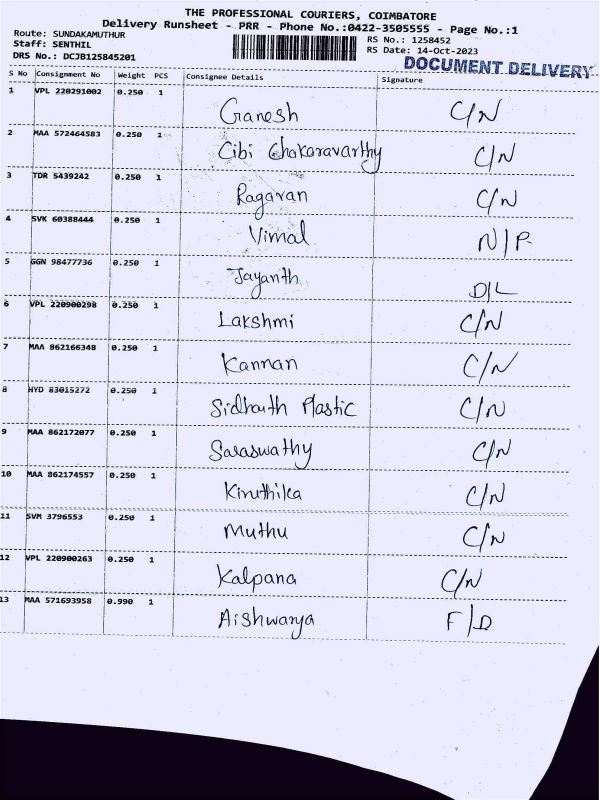 THE PROFESSIONAL COURIERS, COIMBATORE
Delivery Runsheet - PRR - Phone No.:0422-3505555 - Page No.:1
Route: SUNDAKAMUTHUR
Staff: SENTHIL
DRS No.: DCJB125845201
RS No.: 1258452
RS Date: 14-Oct-2023
DOCUMENT DELIVERY
S No Consignment No Weight PCS Consignee Details Signature
1 VPL 220291002 0.250 1 Ganesh C/N
2 MAA 572464583 0.250 1 Cibi Chakaravarthy C/N
3 TDR 5439242 0.250 1 Ragavan C/N
4 SVK 60388444 0.250 1 Vimal N/P
5 GGN 98477736 0.250 1 Jayanth D/L
6 VPL 220900298 0.250 1 Lakshmi C/N
7 MAA 862166348 0.250 1 Kannan C/N
8 HYD 83015272 0.250 1 Sidharth Plastic C/N
9 MAA 862172077 0.250 1 Saraswathy C/N
10 MAA 862174557 0.250 1 Kiruthika C/N
11 SVM 3796553 0.250 1 Muthu C/N
12 VPL 220900263 0.250 1 Kalpana C/N
13 MAA 571693958 0.990 1 Aishwarya F/D